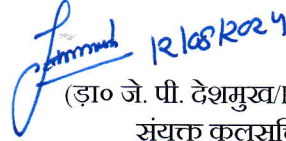 12/08/2024
(ड़ा० जे. पी. देशमुख/
संयुक्त कुलसचि